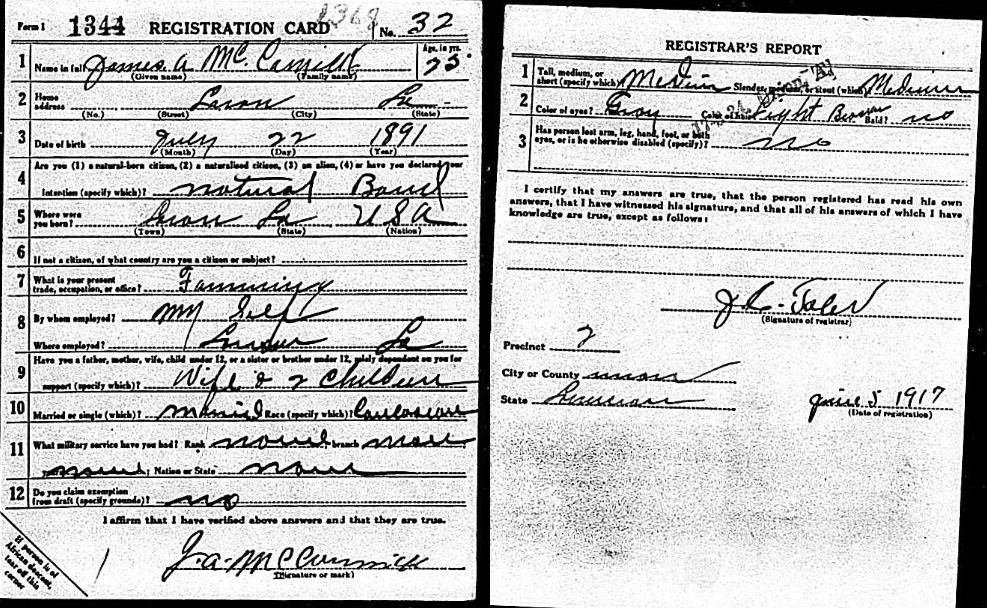 Form 1 1344 REGISTRATION CARD 1368 No. 32
1 Name in full James A Mc. Age, in yrs. 25
(Given name) (Family name)
2 Home address La
(No.) (Street) (City) (State)
3 Date of birth July 22 1891
(Month) (Day) (Year)
4 Are you (1) a natural-born citizen, (2) a naturalized citizen, (3) an alien, (4) or have you declared your
intention (specify which)? natural
5 Where were you born? La USA
(Town) (State) (Nation)
6 If not a citizen, of what country are you a citizen or subject?
7 What is your present trade, occupation, or office? Famming
8 By whom employed? My Self
Where employed? La
9 Have you a father, mother, wife, child under 12, or a sister or brother under 12, solely dependent on you for
support (specify which)? Wife & 2 Children
10 Married or single (which)? Married Race (specify which)?
11 What military service have you had? Rank branch
Nation or State
12 Do you claim exemption from draft (specify grounds)? no
I affirm that I have verified above answers and that they are true.
J. A. McCormick
(Signature or mark)
If person is of
African descent,
tear off this
corner
REGISTRAR'S REPORT
1 Tall, medium, or short (specify which)? Medium Slender, medium, or stout (which)? Medium
2 Color of eyes? Gray Color of hair? Light Brown Bald? no
3 Has person lost arm, leg, hand, foot, or both
eyes, or is he otherwise disabled (specify)? no
I certify that my answers are true, that the person registered has read his own
answers, that I have witnessed his signature, and that all of his answers of which I have
knowledge are true, except as follows:
(Signature of registrar)
Precinct 2
City or County
State
June 5 1917
(Date of registration)